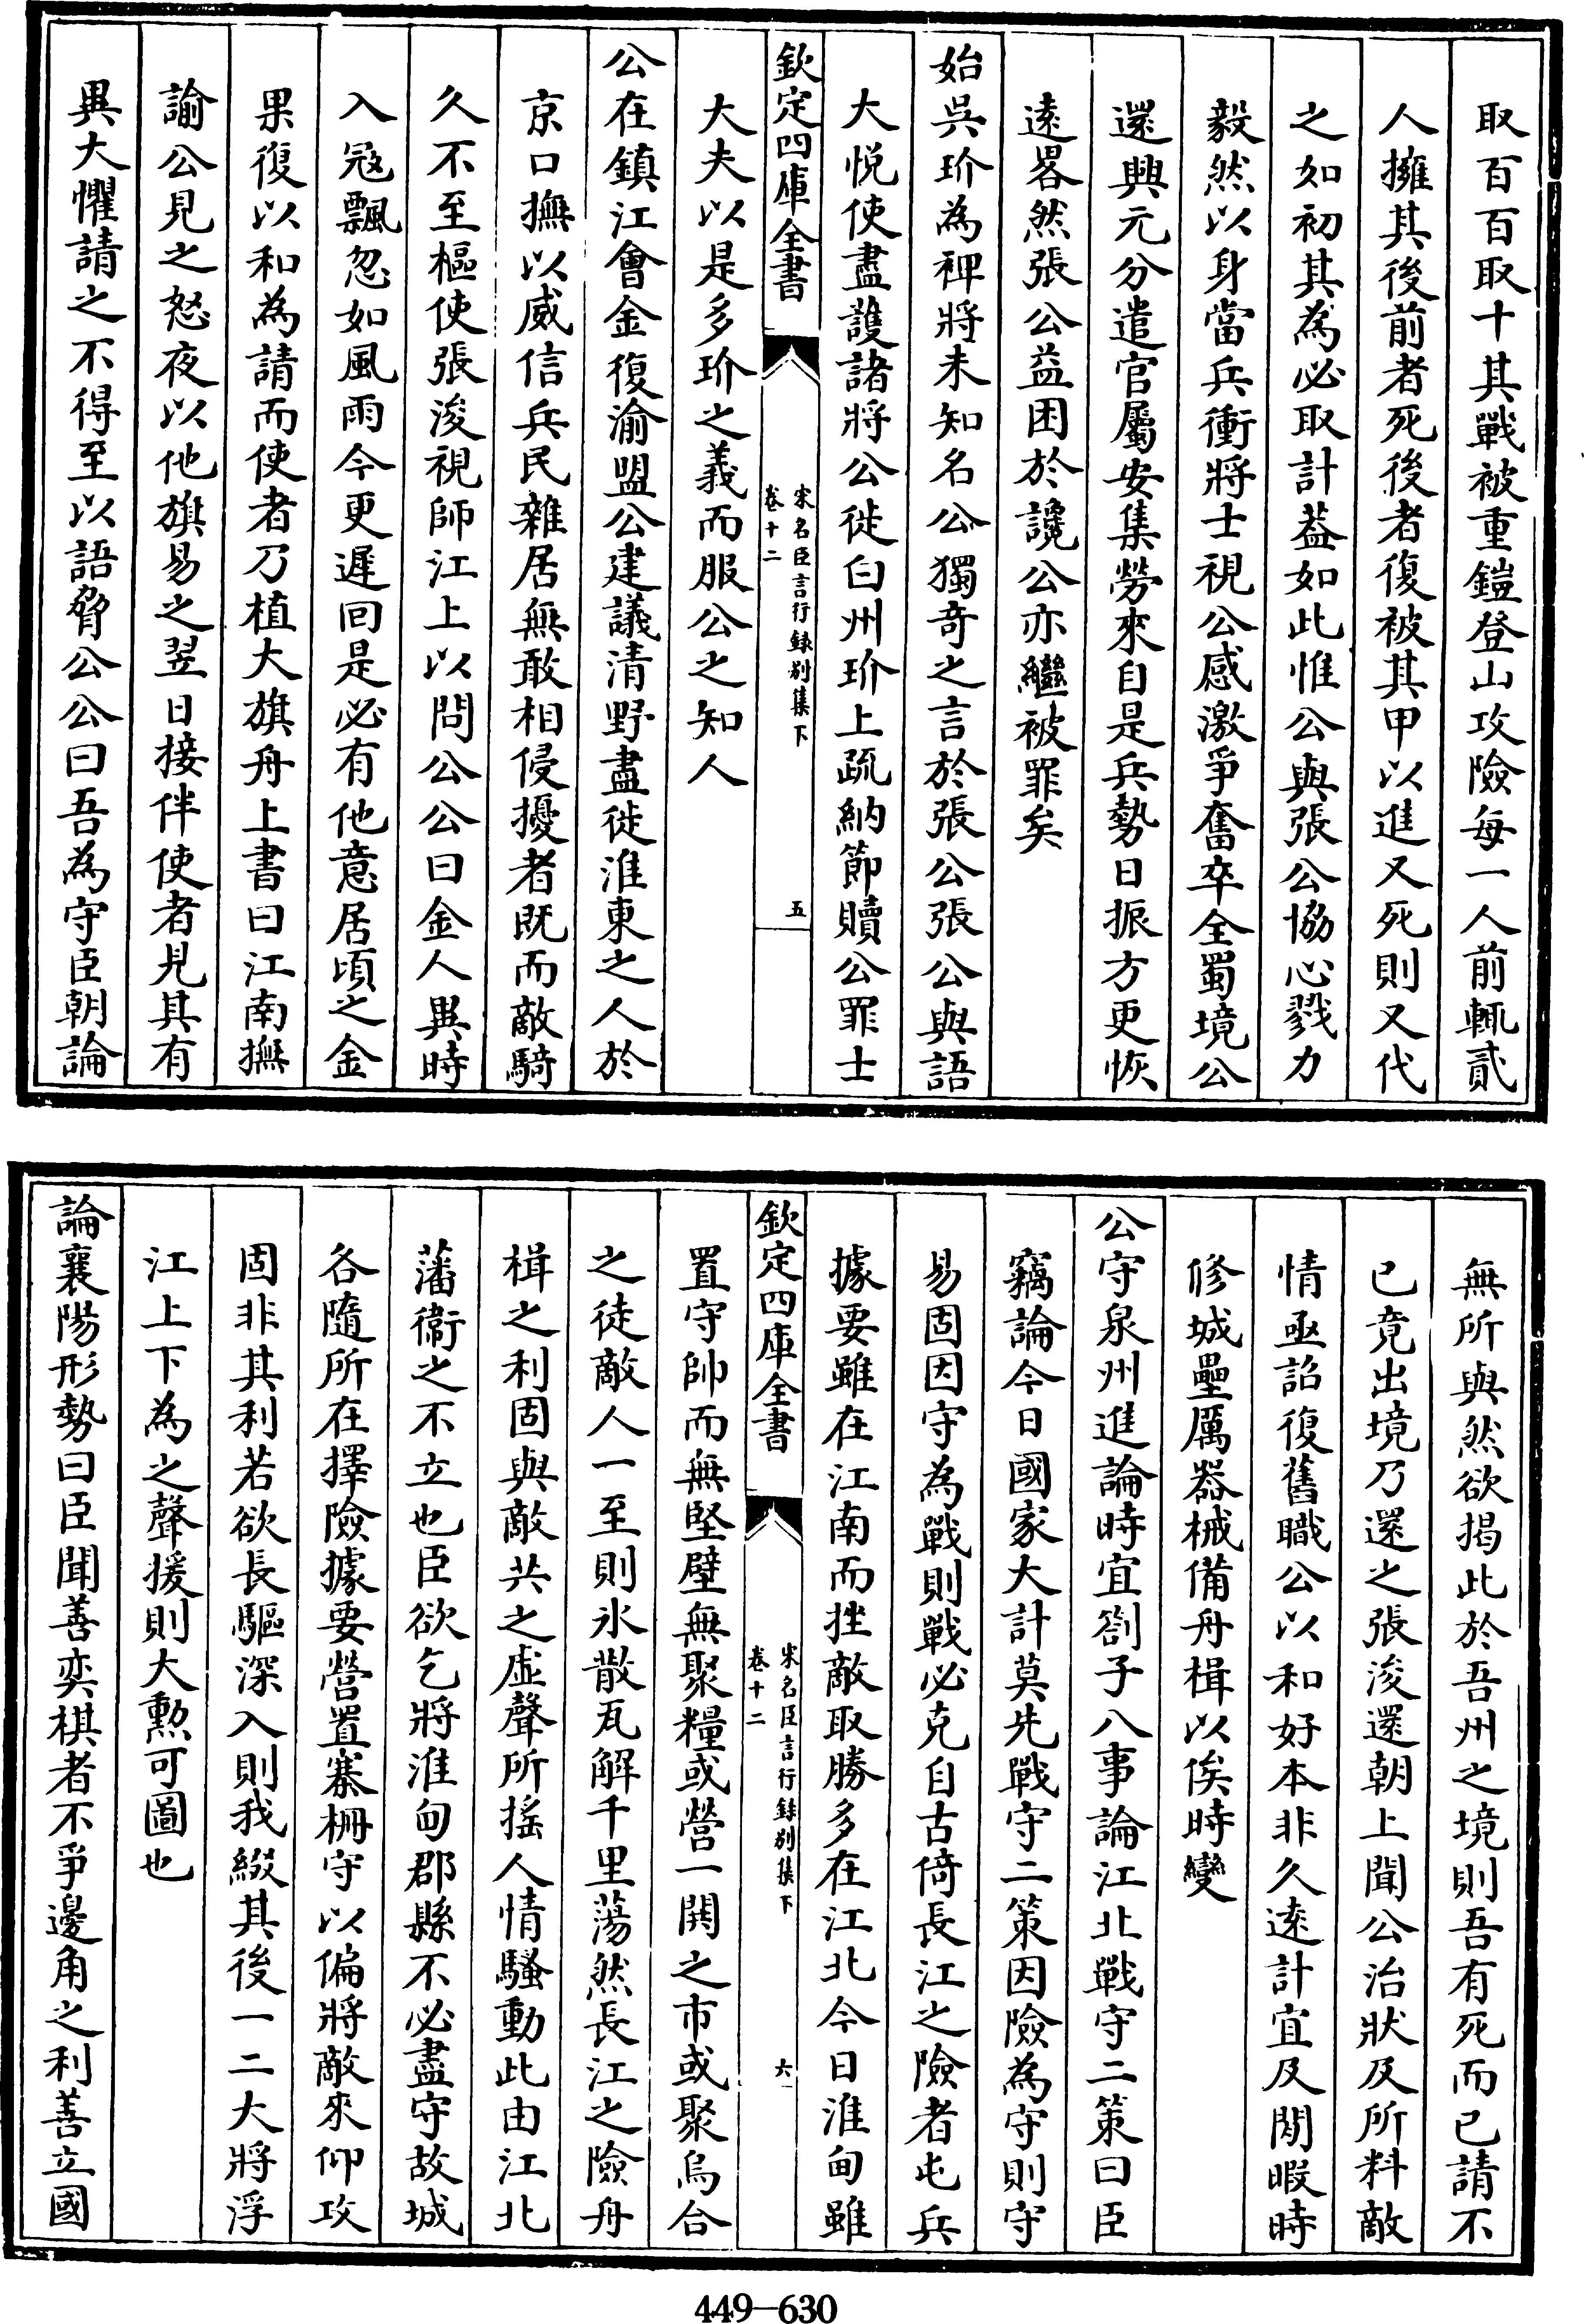 取百百取十其戰被重鎧登山攻險每一人前輒貳
人擁其後前者死後者復被其甲以進又死則又代
之如初其為必取計葢如此惟公與張公協心戮力
毅然以身當兵衝將士視公感激爭奮卒全蜀境公
還興元分遣官屬安集勞來自是兵勢日振方更恢
逺畧然張公益困於讒公亦繼被罪矣
始吳玠為裨將未知名公獨竒之言於張公張公與語
大悦使盡護諸將公徙白州玠上疏納節贖公罪士
欽定四庫全書
宋名臣言行録别集下
卷十二
五
大夫以是多玠之義而服公之知人
公在鎮江會金復渝盟公建議清野盡徙淮東之人於
京口撫以威信兵民雜居無敢相侵擾者既而敵騎
久不至樞使張浚視師江上以問公公曰金人異時
入冦飄忽如風雨今更遲回是必有他意居頃之金
果復以和為請而使者乃植大旗舟上書曰江南撫
諭公見之怒夜以他旗易之翌日接伴使者見其有
異大懼請之不得至以語脅公公曰吾為守臣朝論
無所與然欲揭此於吾州之境則吾有死而已請不
已竟出境乃還之張浚還朝上聞公治狀及所料敵
情亟詔復舊職公以和好本非久逺計宜及閒暇時
修城壘厲器械備舟楫以俟時變
公守泉州進論時宜劄子八事論江北戰守二策曰臣
竊論今日國家大計莫先戰守二策因險為守則守
易固因守為戰則戰必克自古倚長江之險者屯兵
據要雖在江南而挫敵取勝多在江北今日淮甸雖
欽定四庫全書
宋名臣言行録别集下
卷十二
六
置守帥而無堅壁無聚糧或營一閧之市或聚烏合
之徒敵人一至則氷散瓦解千里蕩然長江之險舟
楫之利固與敵共之虛聲所揺人情騷動此由江北
藩衞之不立也臣欲乞將淮甸郡縣不必盡守故城
各隨所在擇險據要營置寨柵守以偏將敵來仰攻
固非其利若欲長驅深入則我綴其後一二大將浮
江上下為之聲援則大勲可圖也
論襄陽形勢曰臣聞善奕棋者不爭邊角之利善立國
449-630